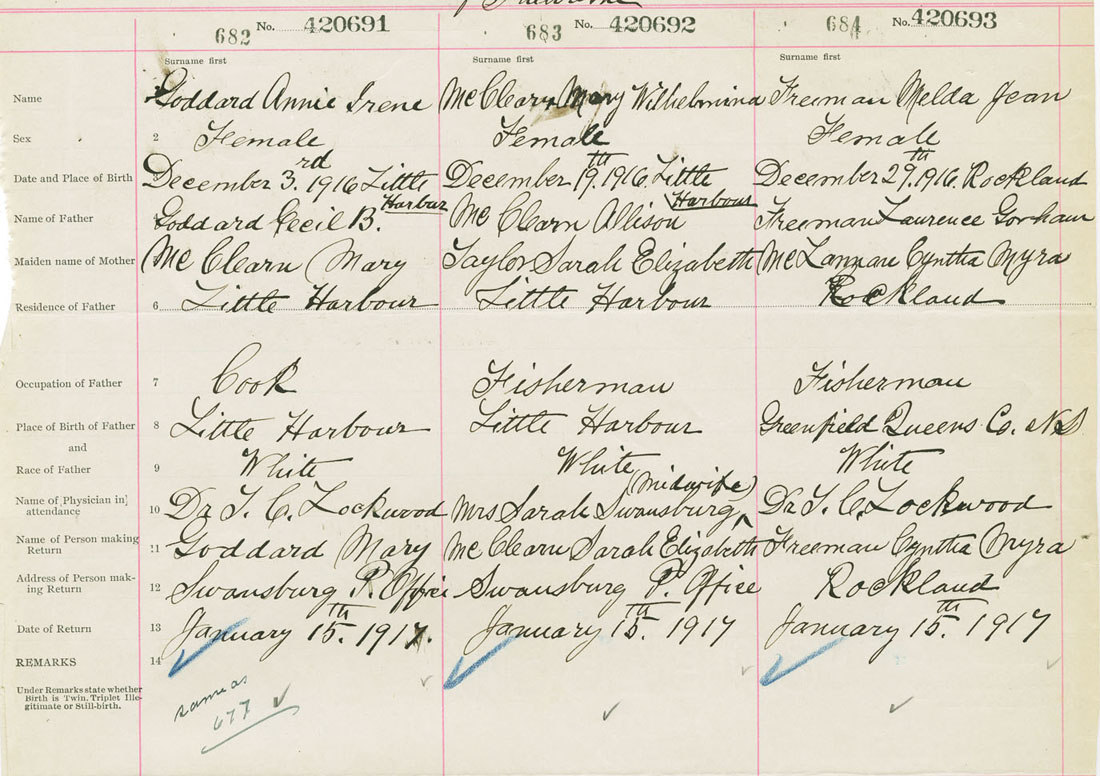 No. 420691 No. 420692 No. 420693
682 683 684
Surname first Surname first Surname first
Name Goddard Annie Irene McClearn Mary Wilhelmina Freeman Melda Jean
Sex 2 Female Female Female
Date and Place of Birth 3 December 3rd. 1916 Little Harbour December 19th. 1916. Little Harbour December 29th. 1916. Rockland
Name of Father Goddard Cecil B. McClearn Allison Freeman Laurence Gorham
Maiden name of Mother McClearn Mary Taylor Sarah Elizabeth Cyntha Myra
Residence of Father 6 Little Harbour Little Harbour Rockland
Occupation of Father 7 Cook Fisherman Fisherman
Place of Birth of Father 8 Little Harbour Little Harbour Greenfield Queens Co. N.S
and
Race of Father 9 White White White
Name of Physician in attendance 10 Dr T. C. Lockwood Mrs Sarah Swansburg (midwife) Dr T. C. Lockwood
Name of Person making Return 11 Goddard Mary McClearn Sarah Elizabeth Freeman Cyntha Myra
Address of Person mak-ing Return 12 Swansburg P. Office Swansburg P. Office Rockland
Date of Return 13 January 15th. 1917. January 15th. 1917 January 15th. 1917
REMARKS 14
Under Remarks state whether
Birth is Twin, Triplet Ille-
gitimate or Still-birth.
same as
677